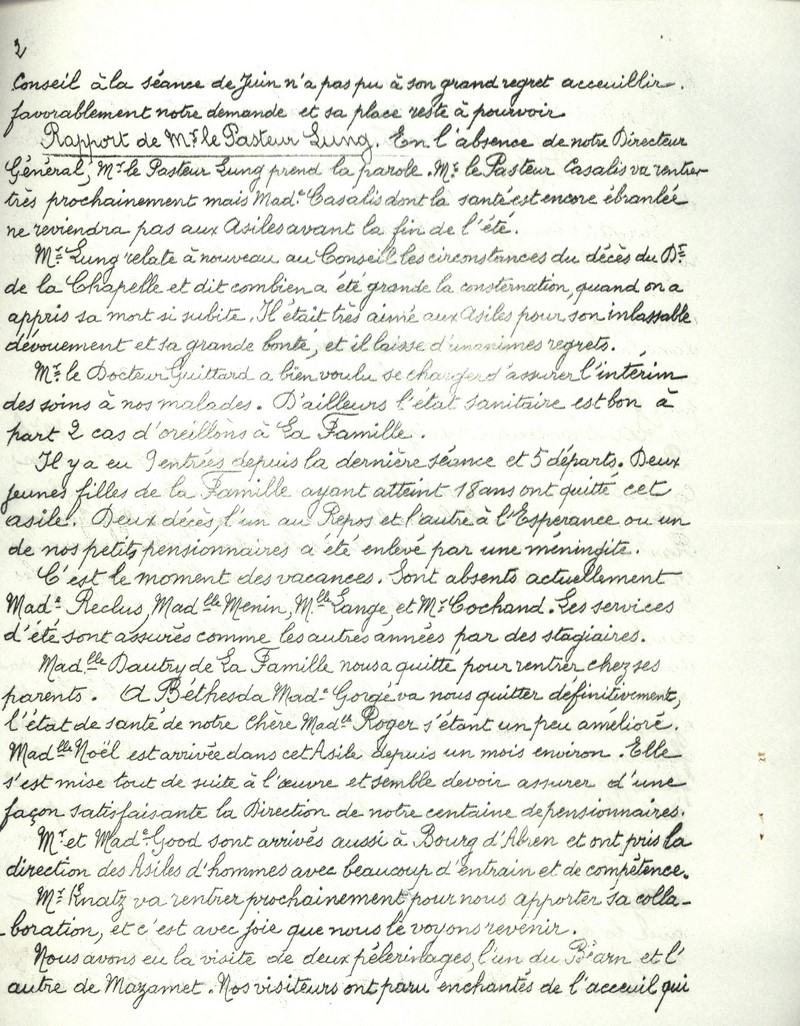 2
Conseil à la séance de Juin n'a pas pu à son grand regret acceuillir.
favorablement notre demande et sa place reste à pourvoir
Rapport de Mr. le Pasteur Lung. En l'absence de notre Directeur
Général, Mr. le Pasteur Lung prend la parole. Mr. le Pasteur Casalis va rentrer
très prochainement mais Made Casalis dont la santé est encore ébranlée
ne reviendra pas aux Asiles avant la fin de l'été.
Mr. Lung relate à nouveau au Conseil les circonstances du décès du Dr.
de la Chapelle et dit combien a été grande la consternation, quand on a
appris sa mort si subite. Il était très aimé aux Asiles pour son inlassable
dévouement et sa grande bonté, et il laisse d'unanimes regrets.
Mr. le Docteur Guittard a bien voulu se charger d'assurer l'intérim
des soins à nos malades. D'ailleurs l'état sanitaire est bon à
part 2 cas d'oreillons à La Famille.
Il y a eu 9 entrées depuis la dernière séance et 5 départs. Deux
jeunes filles de la Famille ayant atteint 18 ans ont quitté cet
asile. Deux décès, l'un au Repos et l'autre à l'Espérance ou un
de nos petits pensionnaires a été enlevé par une méningite.
C'est le moment des vacances. Sont absents actuellement
Made Reclus, Madlle Menin, Mlle Lange, et Mr. Cochand. Les services
d'été sont assurés comme les autres années par des stagiaires.
Madlle Dautry de La Famille nous a quitté pour rentrer chez ses
parents. A Béthesda Made Gorgé va nous quitter définitivement,
l'état de santé de notre chère Madlle Roger s'étant un peu amélioré.
Madlle Noël est arrivée dans cet Asile depuis un mois environ. Elle
s'est mise tout de suite à l'œuvre et semble devoir assurer d'une
façon satisfaisante la Direction de notre centaine de pensionnaires.
Mr. et Made Good sont arrivés aussi à Bourg d'Abren et ont pris la
direction des Asiles d'hommes avec beaucoup d'entrain et de compétence.
Mr. Knatz va rentrer prochainement pour nous apporter sa colla-
-boration, et c'est avec joie que nous le voyons revenir.
Nous avons eu la visite de deux pélerinages, l'un du Béarn et l'
autre de Mazamet. Nos visiteurs ont paru enchantés de l'acceuil qui